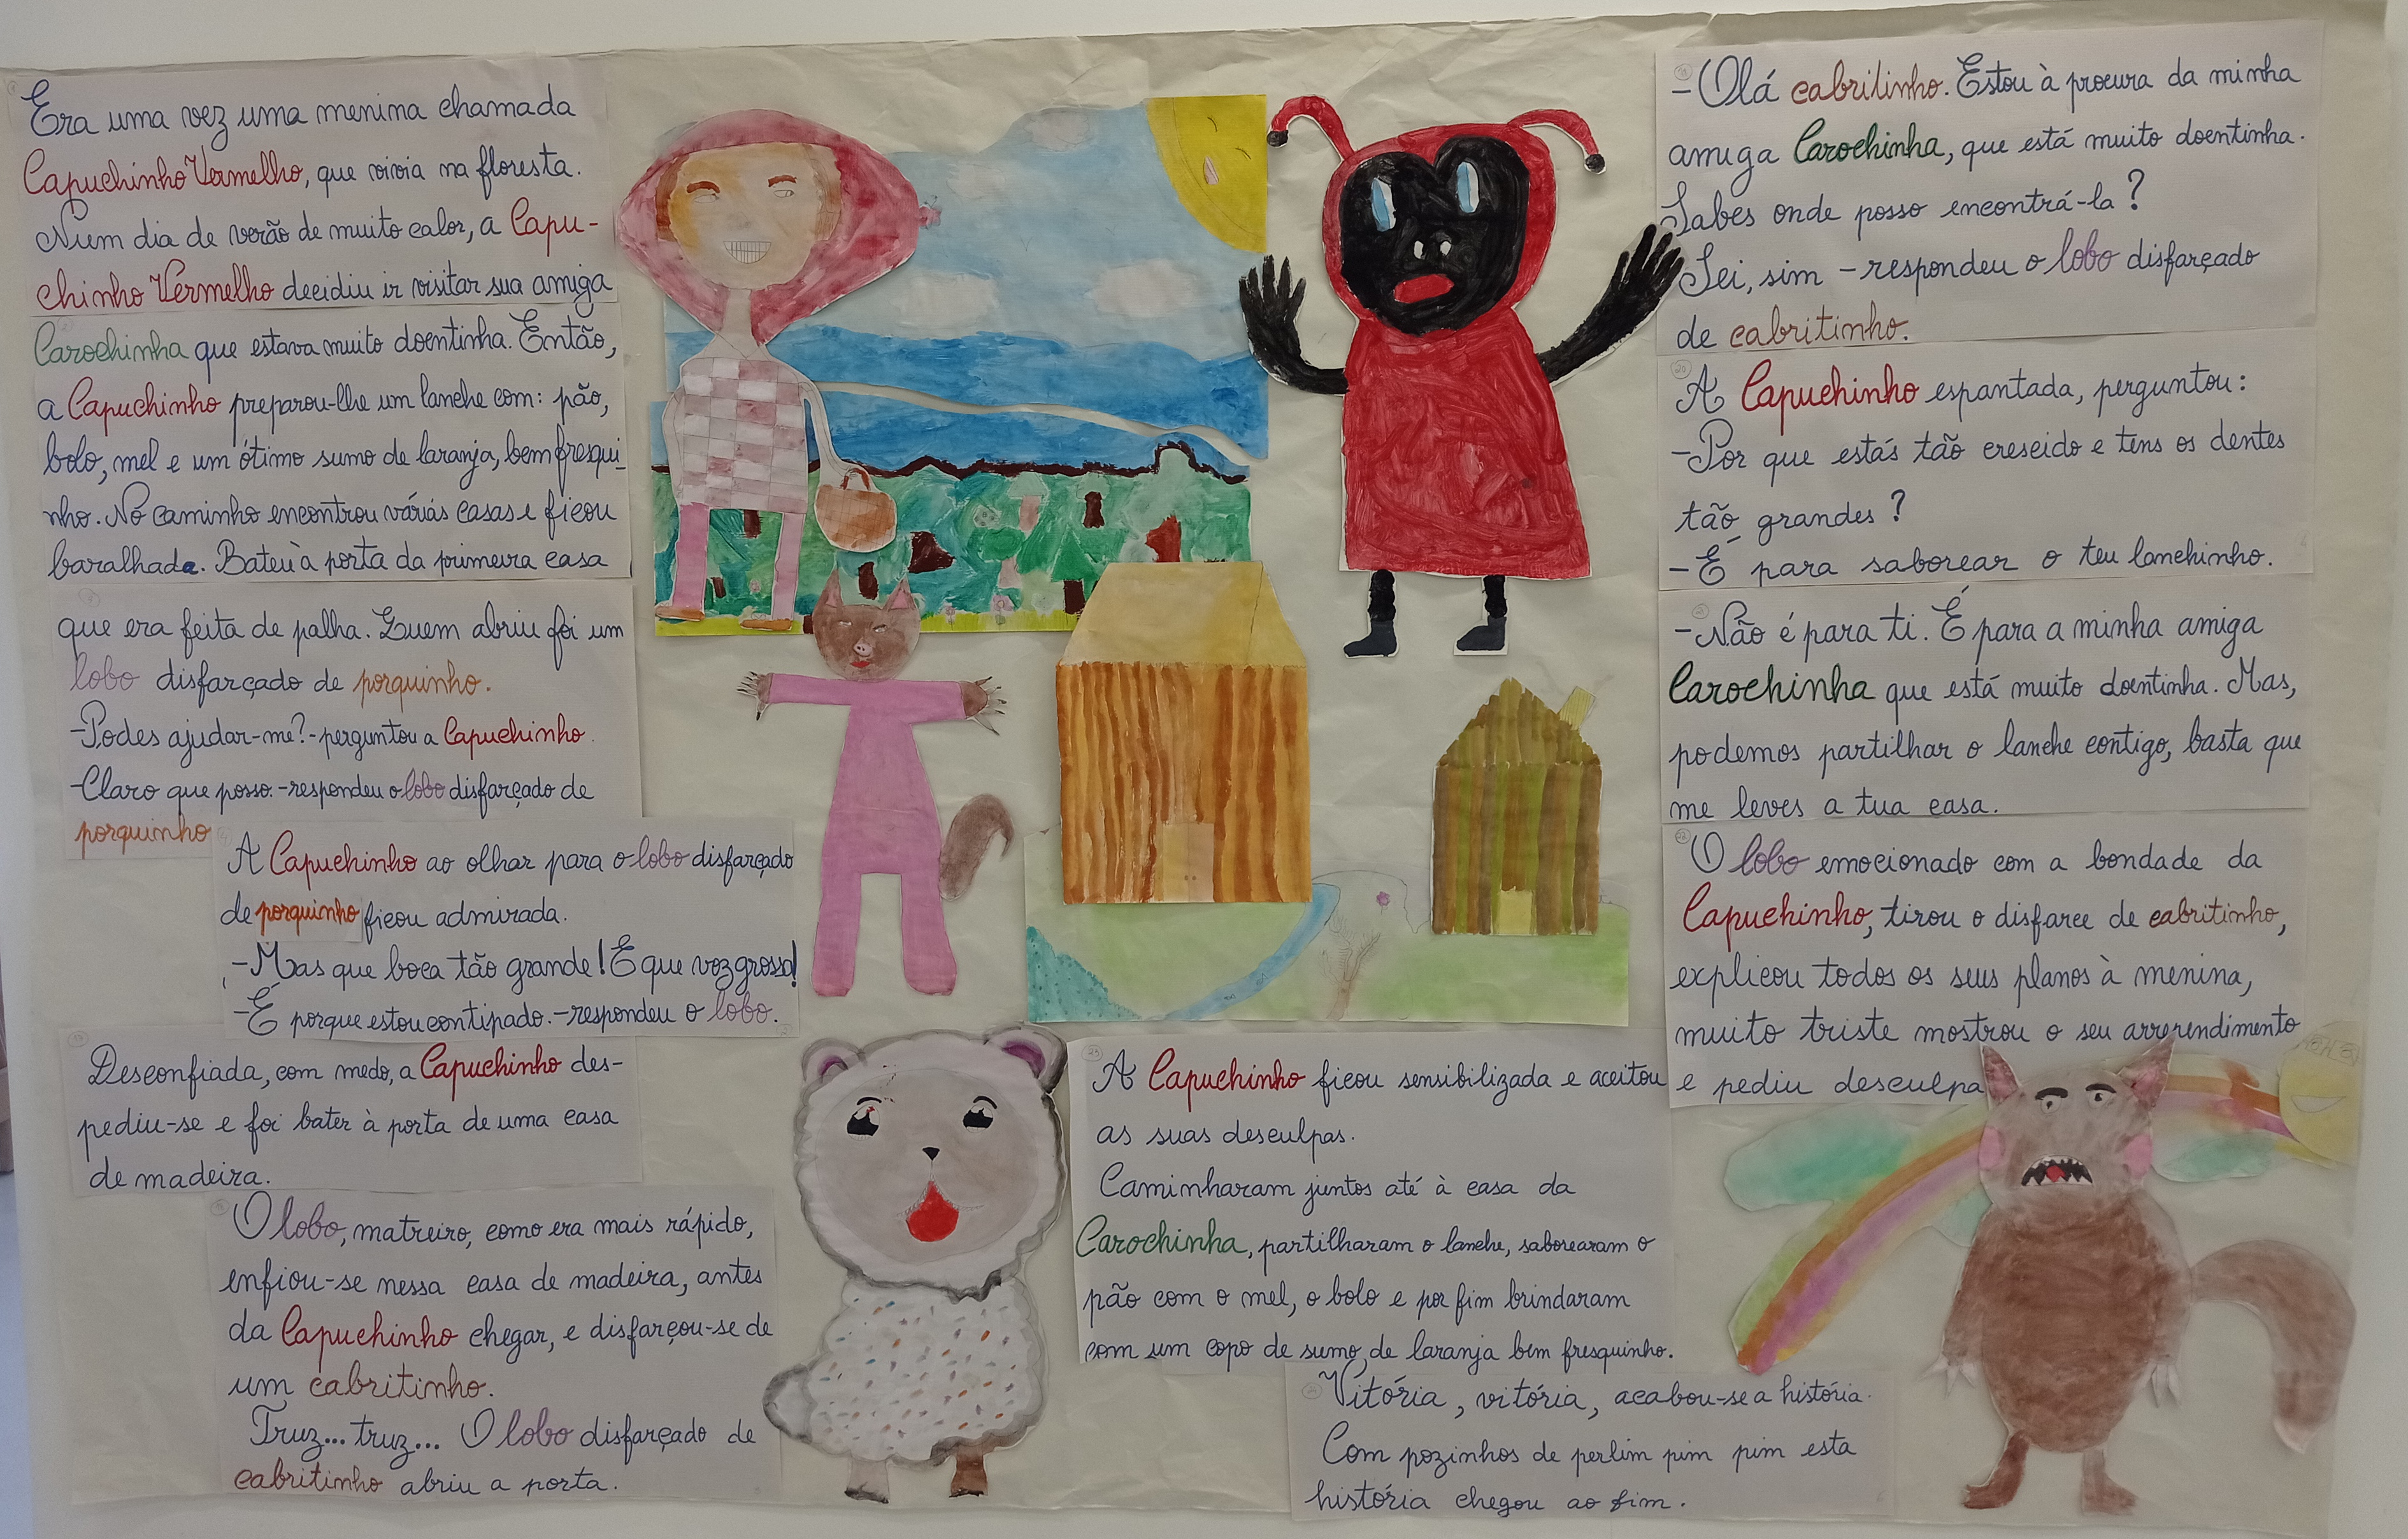 Era uma vez uma menina chamada
Capuchinho Vermelho, que vivia na floresta.
Num dia de verão de muito calor, a Capu-
chinho Vermelho decidiu ir visitar sua amiga
Carochinha que estava muito doentinha. Então,
a Capuchinho preparou-lhe um lanche com: pão,
bolo, mel e um ótimo sumo de laranja, bem fresqui_
nho. No caminho encontrou várias casas e ficou
baralhada. Bateu à porta da primeira casa
que era feita de palha. Quem abriu foi um
lobo disfarçado de porquinho.
-Podes ajudar-me?-perguntou a Capuchinho.
-Claro que posso.-respondeu o lobo disfarçado de
porquinho
A Capuchinho ao olhar para o lobo disfarçado
de porquinho ficou admirada.
-Mas que boca tão grande! E que voz grossa!
-É porque estou contipado.-respondeu o lobo.
Desconfiada, com medo, a Capuchinho des-
pediu-se e foi bater à porta de uma casa
de madeira.
O lobo, matreiro, como era mais rápido,
enfiou-se nessa casa de madeira, antes
da Capuchinho chegar, e disfarçou-se de
um cabritinho.
Truz... truz... O lobo disfarçado de
cabritinho abriu a porta.
-Olá cabritinho. Estou à procura da minha
amiga Carochinha, que está muito doentinha.
Sabes onde posso encontrá-la?
Sei, sim -respondeu o lobo disfarçado
de cabritinho.
A Capuchinho espantada, perguntou:
-Por que estás tão crescido e tens os dentes
tão grandes?
-É para saborear o teu lanchinho.
-Não é para ti. É para a minha amiga
Carochinha que está muito doentinha. Mas,
podemos partilhar o lanche contigo, basta que
me leves a tua casa.
O lobo emocionado com a bondade da
Capuchinho, tirou o disfarce de cabritinho,
explicou todos os seus planos à menina,
muito triste mostrou o seu arrerendimento
e pediu desculpa
A Capuchinho ficou sensibilizada e aceitou
as suas desculpas.
Caminharam juntos até à casa da
Carochinha, partilharam o lanche, saborearam o
pão com o mel, o bolo e por fim brindaram
com um copo de sumo de laranja bem fresquinho.
Vitória, vitória, acabou-se a história.
Com pozinhos de perlim pim pim esta
história chegou ao fim.